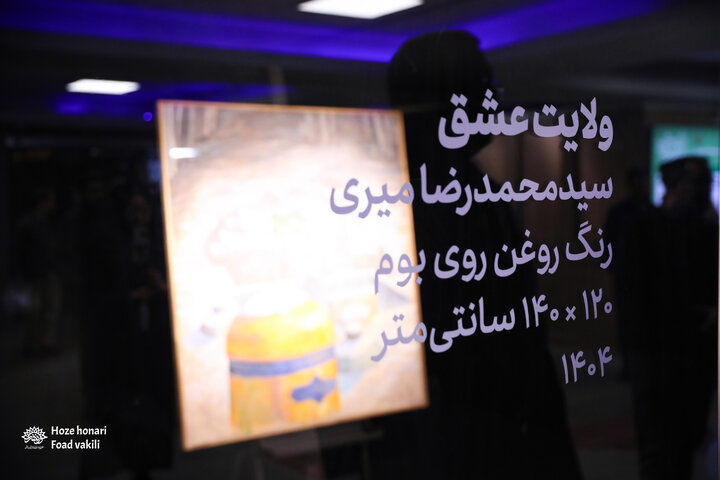 ولایت عشق
سیدمحمدرضا میری
رنگ روغن روی بوم
۱۲۰ × ۱۴۰ سانتی‌متر
۱۴۰۴
Hoze honari
Foad vakili